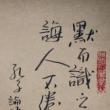 默而識之
誨人不倦
孔子論